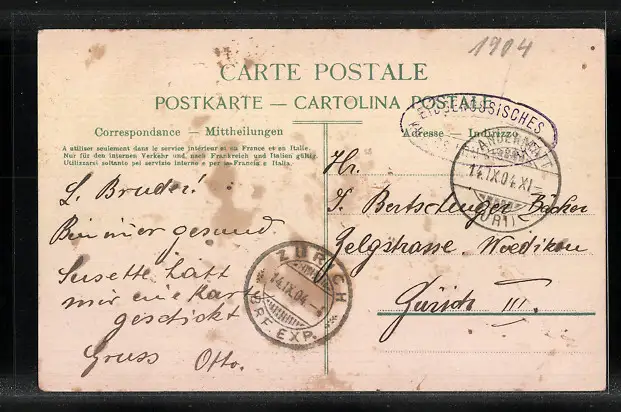 1904
CARTE POSTALE
POSTKARTE — CARTOLINA POSTALE
Correspondance — Mittheilungen
Adresse — Indirizzo
A utiliser seulement dans le service intérieur et en France et en Italie.
Nur für den internen Verkehr und nach Frankreich und Italien gültig.
Utilizzarsi soltanto pel servizio interno e per la Francia e Italia.
EIDGENÖSSISCHES
ANDERMATT
14.IX.04.XI
(URI)
Hr.
Bertschinger Bäcker
Zelgstrasse Wiedikon
Zürich III.
L. Bruder!
Bin gesund.
Susette hatt
mir eine Kar
geschickt
Gruss Otto.
ZÜRICH
14.IX.04
BRF. EXP.